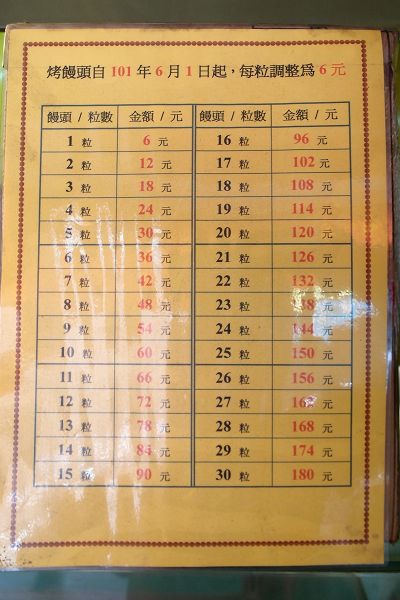 烤饅頭自 101 年 6 月 1 日起，每粒調整為 6 元
饅頭 / 粒數 金額 / 元 饅頭 / 粒數 金額 / 元
1 粒 6 元 16 粒 96 元
2 粒 12 元 17 粒 102 元
3 粒 18 元 18 粒 108 元
4 粒 24 元 19 粒 114 元
5 粒 30 元 20 粒 120 元
6 粒 36 元 21 粒 126 元
7 粒 42 元 22 粒 132 元
8 粒 48 元 23 粒 元
9 粒 54 元 24 粒 144 元
10 粒 60 元 25 粒 150 元
11 粒 66 元 26 粒 156 元
12 粒 72 元 27 粒 元
13 粒 78 元 28 粒 168 元
14 粒 84 元 29 粒 174 元
15 粒 90 元 30 粒 180 元